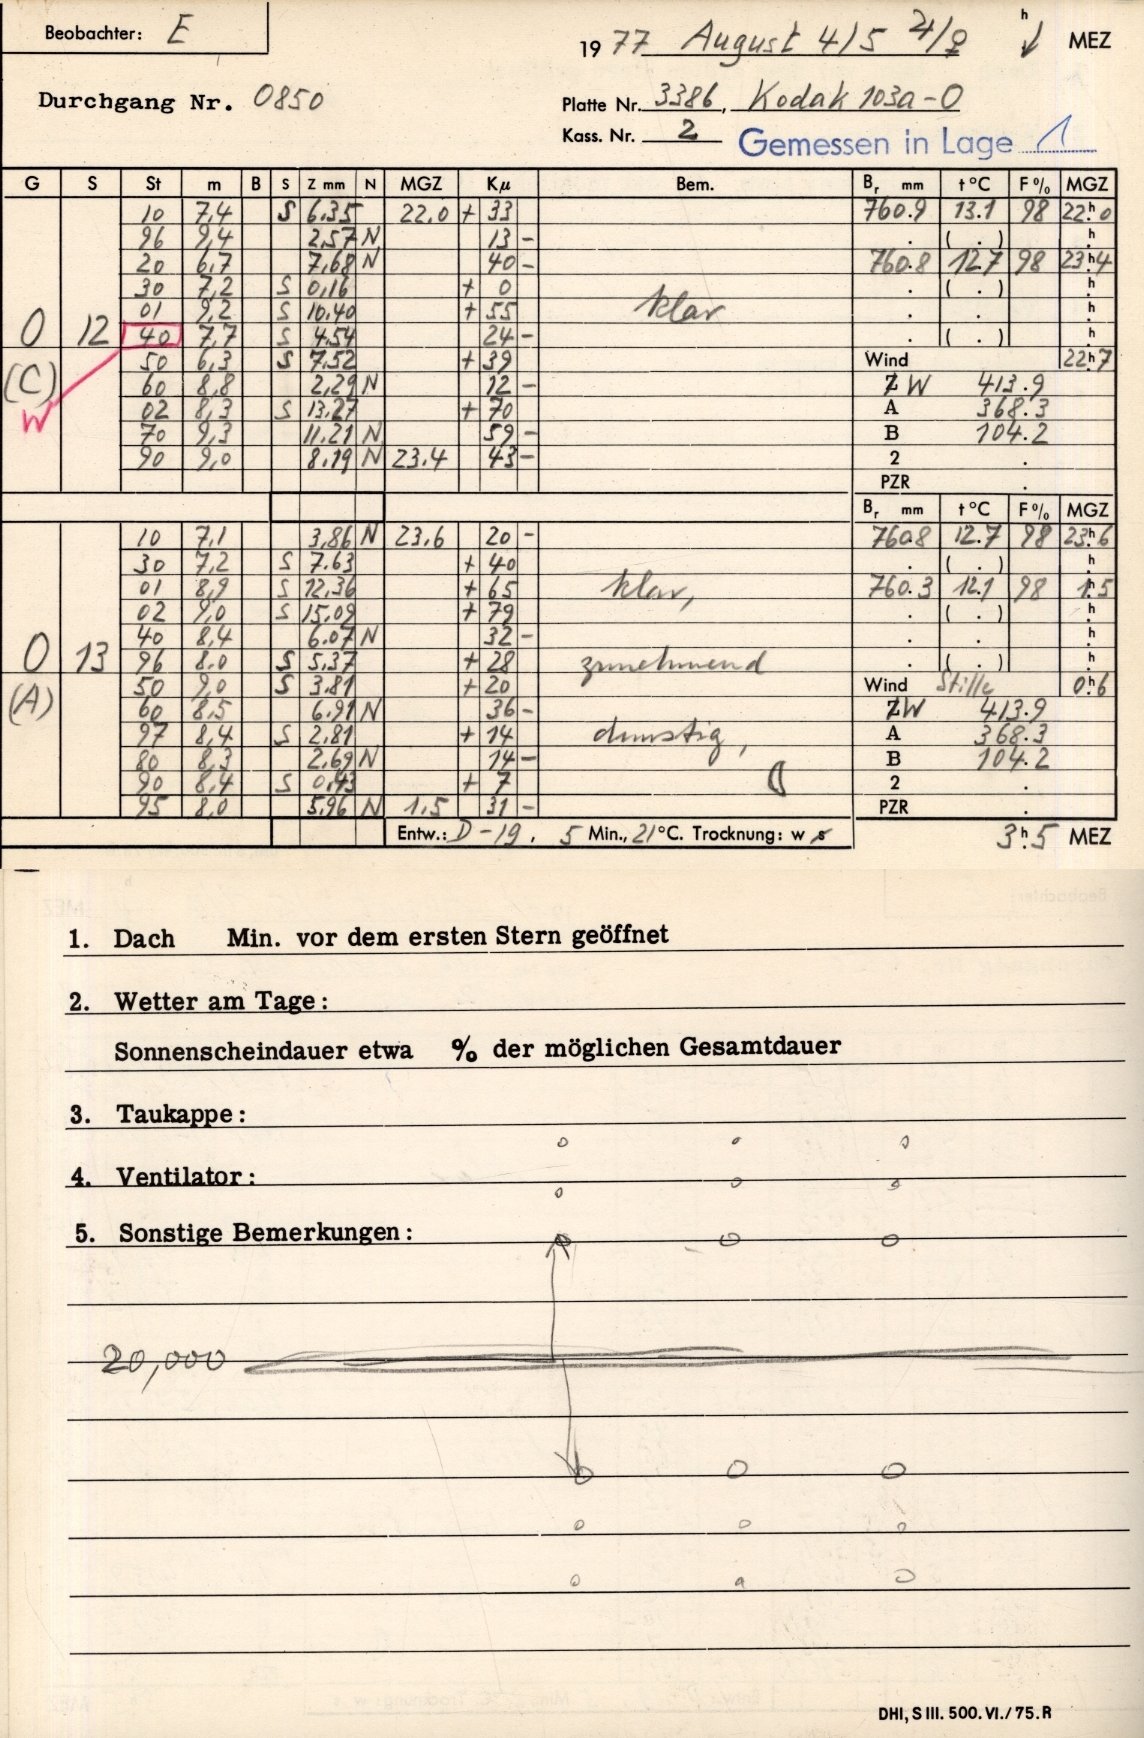 Beobachter: E
1977 August 4/5 ♃/♀ h ↓ MEZ
Durchgang Nr. 0850
Platte Nr. 3386, Kodak 103a-O
Kass. Nr. 2 Gemessen in Lage 1
G S St m B S Z mm N MGZ Kμ Bem. Br mm t°C F% MGZ
10 7,4 S 6,35 22,0 + 33 760.9 13.1 98 22h0
96 9,4 2,57 N 13 - . ( . ) h
20 6,7 7,68 N 40 - 760.8 12.7 98 23h4
30 7,2 S 0,16 + 0 . ( . ) h
01 9,2 S 10,40 + 55 klar . . h
0 12 40 7,7 S 4,54 24 - ( . ) h
50 6,3 S 7,52 + 39 Wind 22h7
(C) 60 8,8 2,29 N 12 - Z W 413.9
W 02 8,3 S 13,27 + 70 A 368.3
70 9,3 11,21 N 59 - B 104.2
90 9,0 8,19 N 23,4 43 - 2 .
PZR .
Br mm t°C F% MGZ
10 7,1 3,86 N 23,6 20 - 760.8 12.7 98 23h6
30 7,2 S 7,63 + 40 . ( . ) h
01 8,9 S 12,36 + 65 klar, 760.3 12.1 98 1h5
02 9,0 S 15,09 + 79 . ( . ) h
40 8,4 6,07 N 32 - . . h
0 13 96 8,0 S 5,37 + 28 zunehmend . ( . ) h
(A) 50 9,0 S 3,81 + 20 Wind Stille 0h6
60 8,5 6,91 N 36 - Z W 413.9
97 8,4 S 2,81 + 14 dunstig, A 368.3
80 8,3 2,69 N 14 - B 104.2
90 8,4 S 0,43 + 7 2 .
95 8,0 5,96 N 1,5 31 - PZR .
Entw.: D-19. 5 Min., 21°C. Trocknung: w s 3h5 MEZ
1. Dach Min. vor dem ersten Stern geöffnet
2. Wetter am Tage:
Sonnenscheindauer etwa % der möglichen Gesamtdauer
3. Taukappe:
4. Ventilator:
5. Sonstige Bemerkungen:
20,000
DHI, S III. 500. VI./75. R